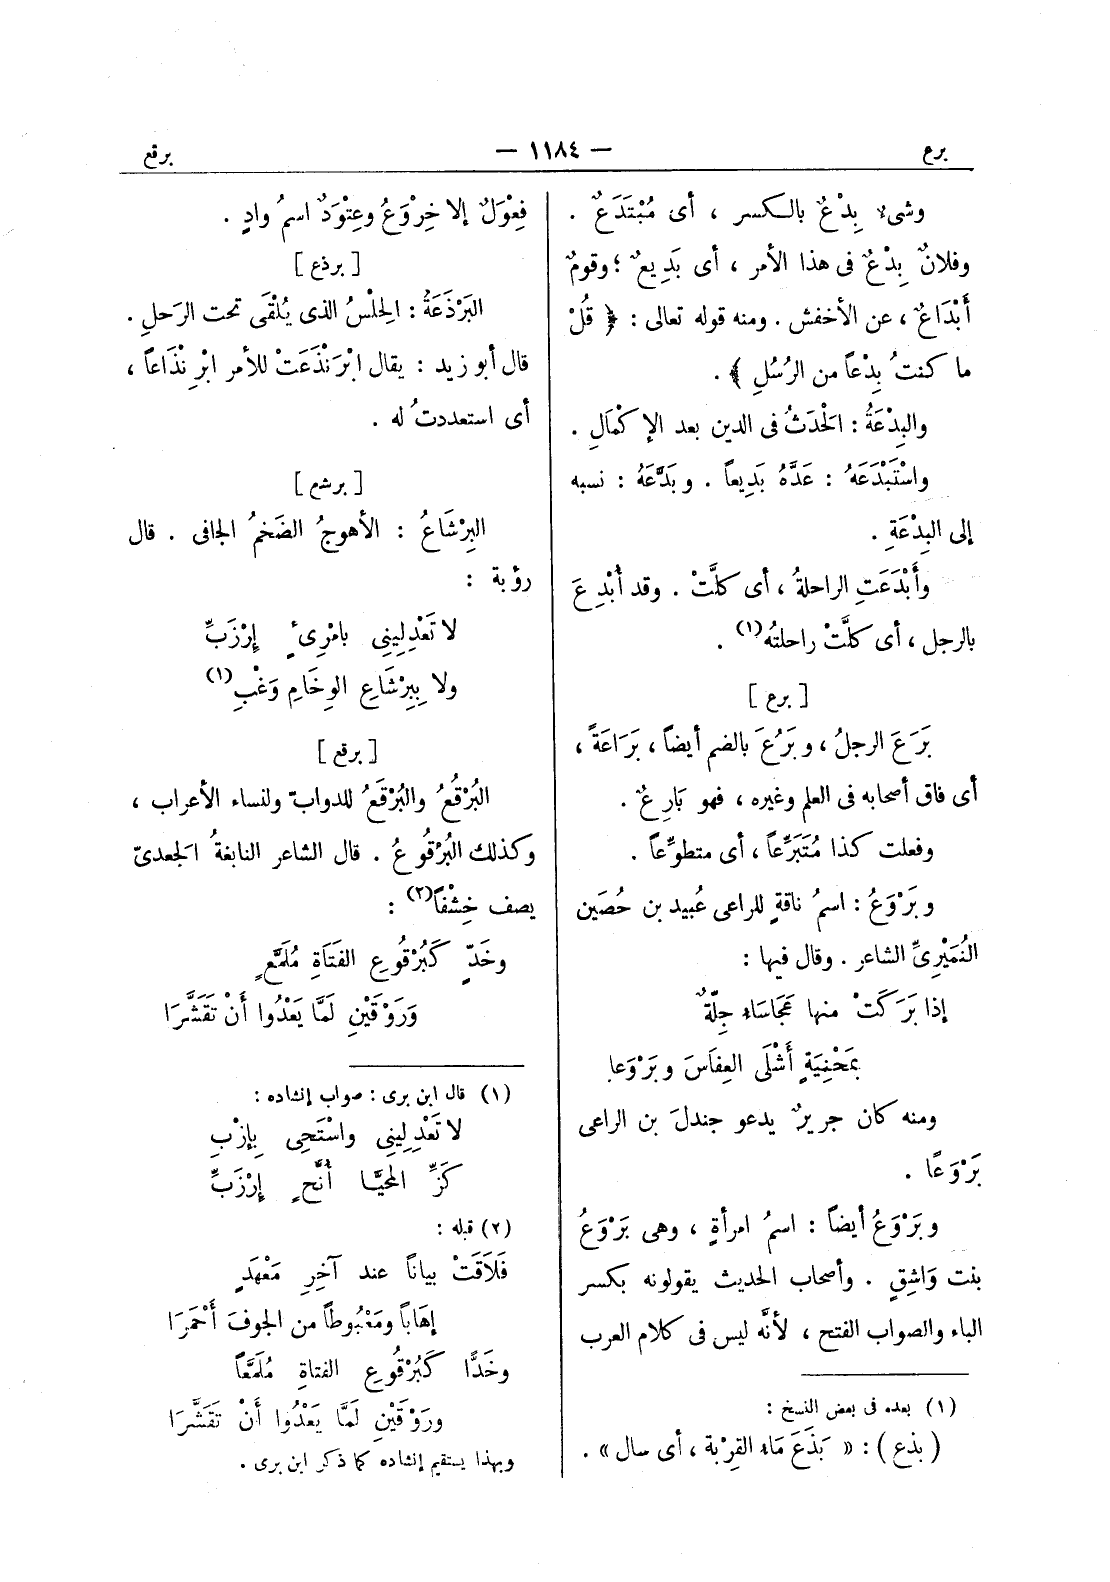 برع — ١١٨٤ — برقع
وشىء بِدْعٌ بالكسر ، أى مُبْتَدَعٌ .
وفلانٌ بِدْعٌ فى هذا الأمر ، أى بَدِيعٌ ؛ وقومٌ
أَبْدَاعٌ ، عن الأخفش . ومنه قوله تعالى : ﴿ قُلْ
ما كنتُ بِدْعاً من الرُسُلِ ﴾ .
والبِدْعَةُ : الحَدَثُ فى الدين بعد الإكْمَالِ .
واسْتَبْدَعَهُ : عَدَّهُ بَدِيعاً . وبَدَّعَهُ : نسبه
إلى البِدْعَةِ .
وأَبْدَعَتِ الراحلةُ ، أى كلَّتْ . وقد أُبْدِعَ
بالرجل ، أى كلَّتْ راحلتُه(١) .
[ برع ]
بَرَعَ الرجلُ ، وبَرُعَ بالضم أيضاً ، بَرَاعَةً ،
أى فاق أصحابه فى العلم وغيره ، فهو بَارِعٌ .
وفعلت كذا مُتَبَرِّعاً ، أى متطوِّعاً .
وبَرْوَعُ : اسمُ ناقةٍ للراعى عُبيد بن حُصَين
النُمَيْرِىِّ الشاعر . وقال فيها :
إذا بَرَكَتْ منها عَجَاسَاء جِلّةٌ
بمَحْنِيَةٍ أَشْلَى العِفَاسَ وبَرْوَعا
ومنه كان جريرٌ يدعو جندلَ بن الراعى
بَرْوَعًا .
وبَرْوَعُ أيضاً : اسمُ امرأةٍ ، وهى بَرْوَعُ
بنت وَاشِقٍ . وأصحاب الحديث يقولونه بكسر
الباء والصواب الفتح ، لأنَّه ليس فى كلام العرب
(١) بعده فى بعض النسخ :
( بذع ) : « بَذَعَ مَاء القِرْبة ، أى سال » .
فِعْوَلٌ إلا خِرْوَعُ وعِتْوَدٌ اسمُ وادٍ .
[ برذع ]
البَرْذَعَةُ : الحِلْسُ الذى يُلْقَى تحت الرَحلِ .
قال أبو زيد : يقال ابْرَنْذَعَتْ للأمر ابْرِنْذَاعاً ،
أى استعددتُ له .
[ برشع ]
البِرْشَاعُ : الأهوجُ الضَخمُ الجافى . قال
رؤبة :
لا تَعْدِلِينِى بامْرِىءٍ إِرْزَبِّ
ولا بِبِرْشَاعِ الوِخَامِ وَغْبِ(١)
[ برقع ]
البُرْقُعُ والبُرْقَعُ للدوابّ ولنساء الأعراب ،
وكذلك البُرْقوعُ . قال الشاعر النابغةُ الجعدىّ
يصف خِشْفاً(٢) :
وخَدٍّ كَبُرْقُوعِ الفَتَاةِ مُلَمَّعٍ
وَرَوْقَيْنِ لَمَّا يَعْدُوا أَنْ تَقَشَّرَا
(١) قال ابن برى : صواب إنشاده :
لا تَعْدِلِينِى واسْتَحِى بِإِزْبِ
كَزِّ المُحَيَّا أُنَّحٍ إِرْزَبِّ
(٢) قبله :
فَلَاقَتْ بياناً عند آخِرِ مَعْهَدٍ
إهَاباً ومَعْبُوطاً من الجوفَ أَحْمَرَا
وخَدًّا كَبُرْقُوعِ الفتاةِ مُلَمَّعاً
ورَوْقَيْنِ لَمَّا يَعْدُوا أَنْ تَقَشَّرَا
وبهذا يستقيم إنشاده كما ذكر ابن برى .